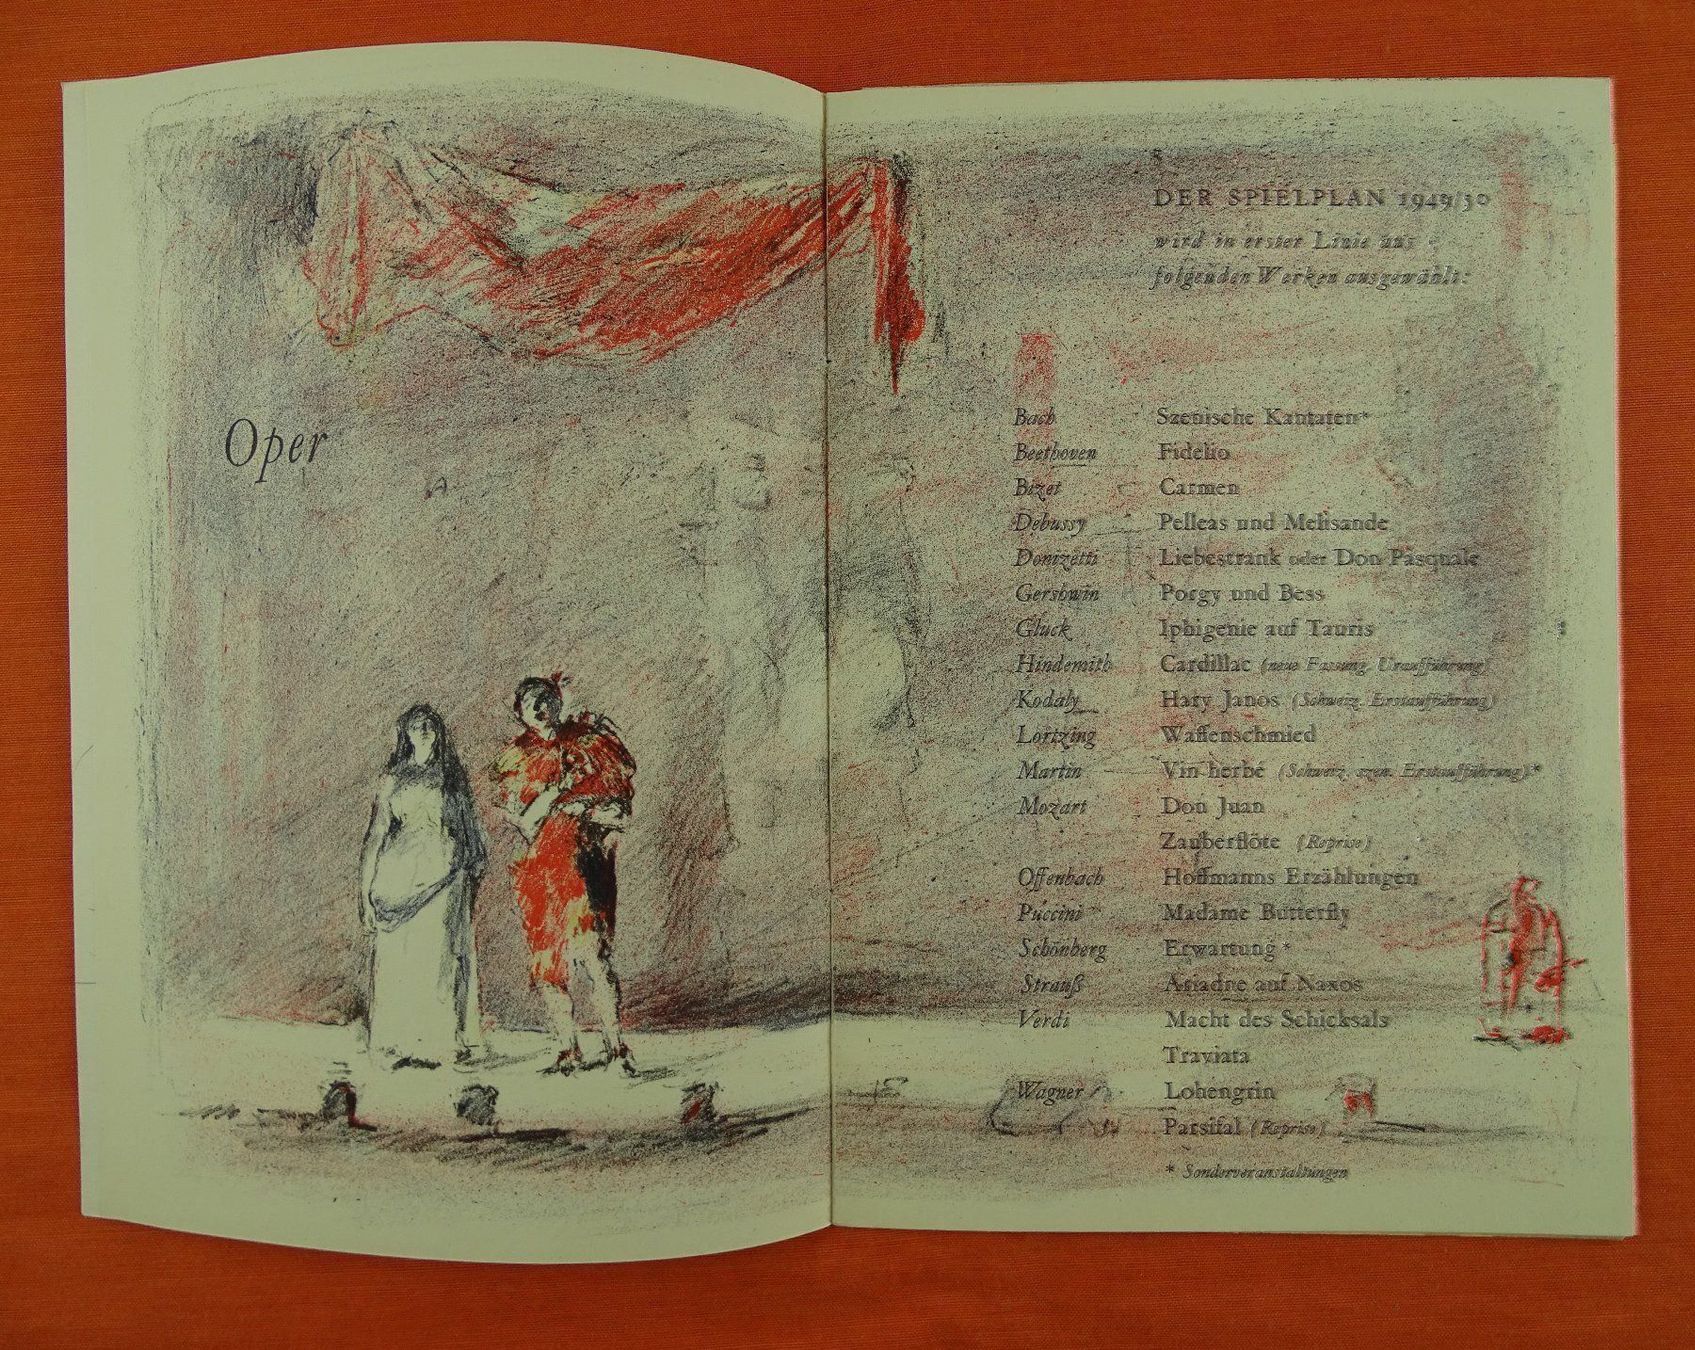 Oper
DER SPIELPLAN 1949/50
wird in erster Linie aus
folgenden Werken ausgewählt:
Bach Szenische Kantaten*
Beethoven Fidelio
Bizet Carmen
Debussy Pelleas und Melisande
Donizetti Liebestrank oder Don Pasquale
Gershwin Porgy und Bess
Gluck Iphigenie auf Tauris
Hindemith Cardillac (neue Fassung, Uraufführung)
Kodály Hary Janos (Schweiz. Erstaufführung)
Lortzing Waffenschmied
Martin Vin herbé (Schweiz. szen. Erstaufführung)*
Mozart Don Juan
Zauberflöte (Reprise)
Offenbach Hoffmanns Erzählungen
Puccini Madame Butterfly
Schönberg Erwartung*
Strauß Ariadne auf Naxos
Verdi Macht des Schicksals
Traviata
Wagner Lohengrin
Parsifal (Reprise)
* Sonderveranstaltungen